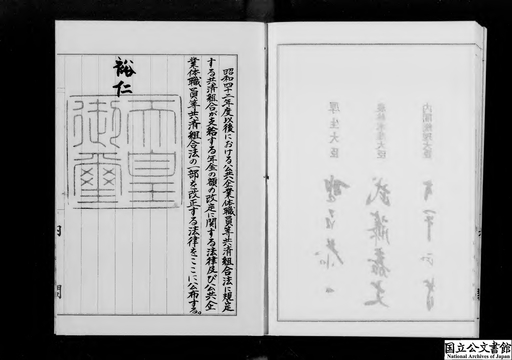 昭和四十二年度以後における公共企業体職員等共済組合法に規定
する共済組合が支給する年金の額の改定に関する法律及び公共企
業体職員等共済組合法の一部を改正する法律をここに公布する。
裕仁
天皇
御璽
内閣
国立公文書館
National Archives of Japan